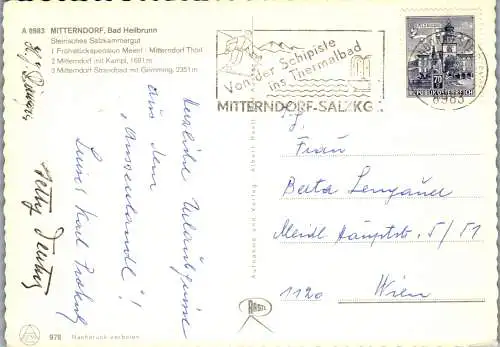 A 8983 MITTERNDORF, Bad Heilbrunn
Steirisches Salzkammergut
1 Frühstückspension Meierl / Mitterndorf Thörl
2 Mitterndorf mit Kampl, 1681 m
3 Mitterndorf Strandbad mit Grimming, 2351 m
Von der Schipiste
ins Thermalbad
MITTERNDORF-SALZKG.
8983
REPUBLIK ÖSTERREICH
Herzliche Urlaubsgrüsse
aus dem
"Ausseerlandl"!
Luise Karl
Hetty
Fam.
Frau
Berta Lengauer
Meidl. Hauptstr. 5/51
1120 Wien
Aufnahme und Verlag: Albert Rastl
RASTL
978 Nachdruck verboten